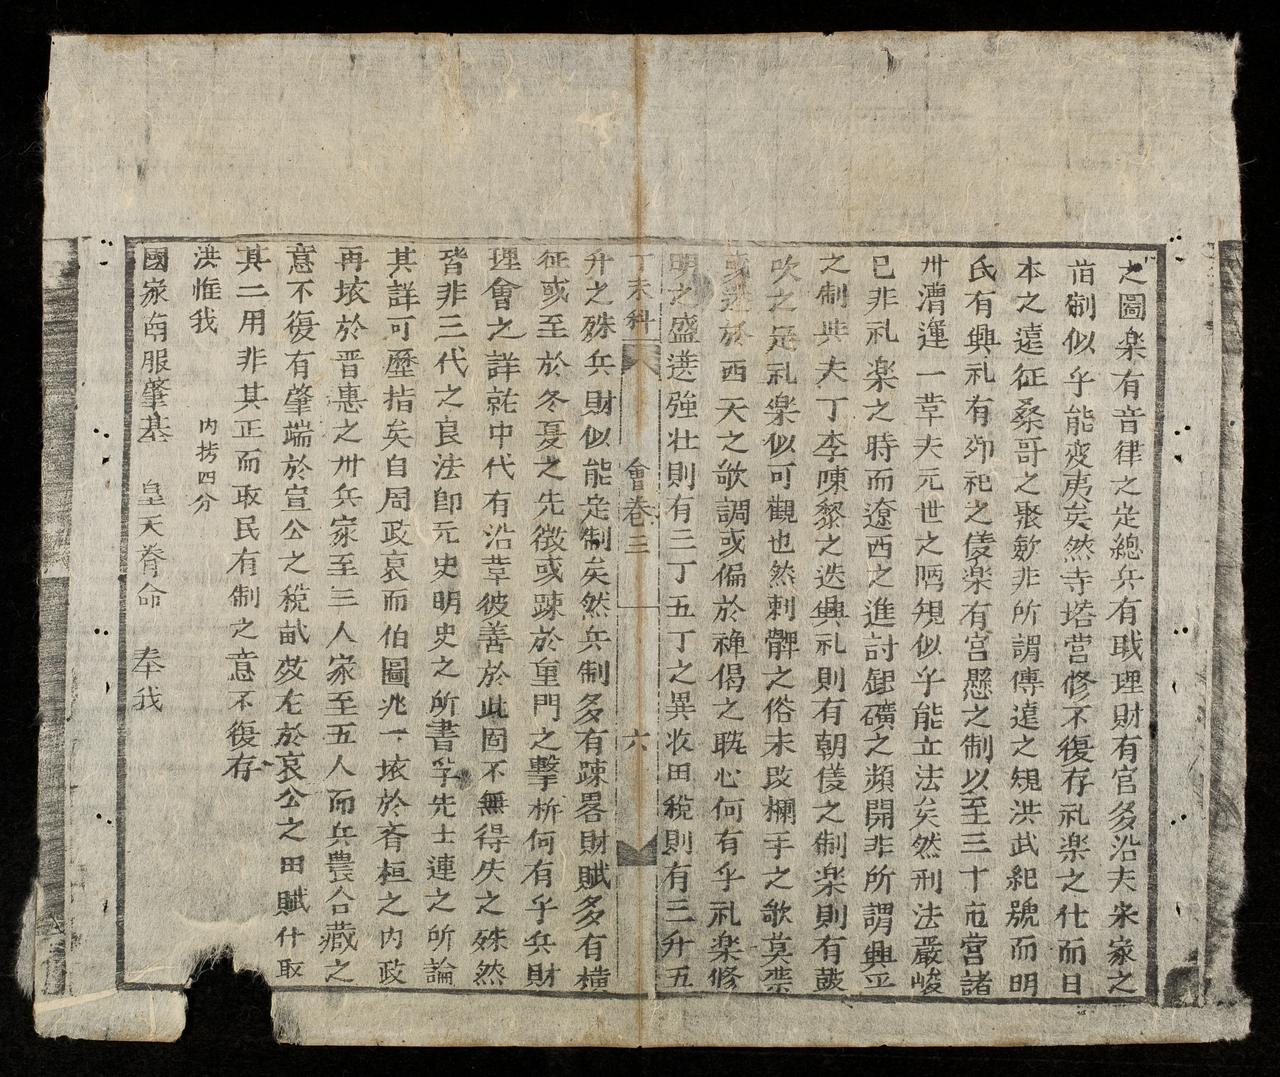 之圖楽有音律之定總兵有職理財有官多沿夫宋家之
旧制似乎能变夷矣然寺塔営修不復存礼楽之化而日
本之遠征桑哥之聚歛非所謂傳遠之規洪武紀號而明
氏有興礼有郊祀之儀楽有宫懸之制以至三十衛営諸
州漕運一革夫元世之陋規似乎能立法矣然刑法嚴峻
已非礼楽之時而遼西之進討銀礦之頻開非所謂興平
之制其夫丁李陳黎之迭興礼則有朝儀之制楽則有鼓
吹之定礼楽似可觀也然刺髀之俗未改欄手之歌莫禁
或迷於西天之歌調或偏於禅偈之耽心何有乎礼楽修
明之盛選強壮則有三丁五丁之異收田稅則有三升五
丁未科 會卷三 六
升之殊兵財似能定制矣然兵制多有踈畧財賦多有横
征或至於冬夏之先徴或踈於重門之擊柝何有乎兵財
理會之詳茲中代有沿革彼善於此固不無得失之殊然
皆非三代之良法即元史明史之所書孚先士連之所論
其詳可歴指矣自周政衰而伯圖兆一坏於斉桓之内政
再坏於晋惠之州兵家至三人家至五人而兵農合藏之
意不復有肇端於宣公之稅畝茇左於哀公之田賦什取
其二用非其正而取民有制之意不復存
洪惟我 内拷四分
國家南服肇基 皇天眷命 奉我